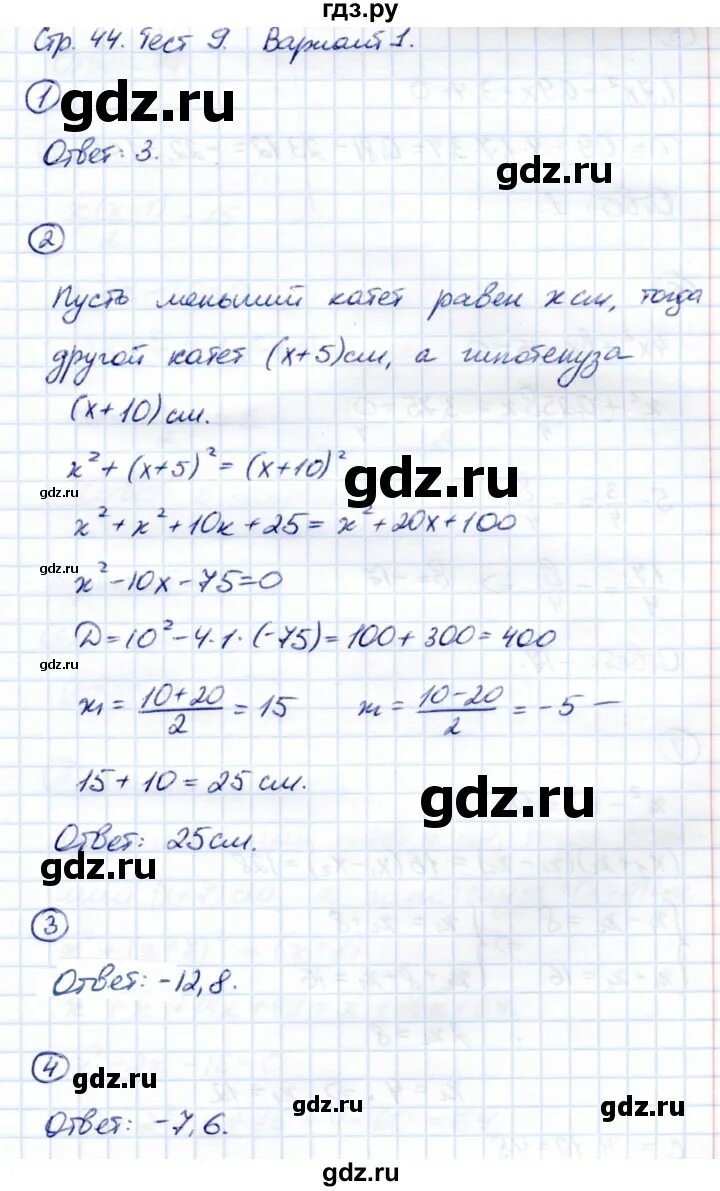 гдз.ру
Стр. 44. Тест 9. Вариант 1.
1
gdz.ru
Ответ: 3.
gdz.ru
2
Пусть меньший катет равен x см, тогда
другой катет (x+5) см, а гипотенуза
(x+10) см.
x² + (x+5)² = (x+10)²
gdz.ru
gdz.ru
x² + x² + 10x + 25 = x² + 20x + 100
gdz.ru
x² - 10x - 75 = 0
D = 10² - 4·1·(-75) = 100 + 300 = 400
gdz.ru
x₁ = (10+20)/2 = 15 x₁ = (10-20)/2 = -5 —
15 + 10 = 25 см.
gdz.ru
Ответ: 25 см.
gdz.ru
3
Ответ: -12,8.
4
gdz.ru
gdz.ru
gdz.ru
Ответ: -7,6.
gdz.ru